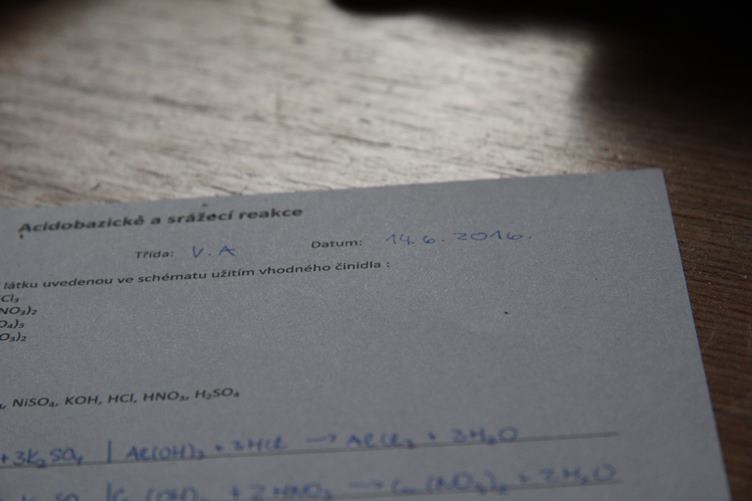 Acidobazické a srážecí reakce
Třída: V.A Datum: 14.6.2016.
látku uvedenou ve schématu užitím vhodného činidla :
Cl₃
NO₃)₂
O₄)₃
O₃)₂
, NiSO₄, KOH, HCl, HNO₃, H₂SO₄
+3K₂SO₄ | Al(OH)₃ + 3HCl → AlCl₃ + 3H₂O
(OH)₂ + 2HNO₃ → (NO₃)₂ + 2H₂O